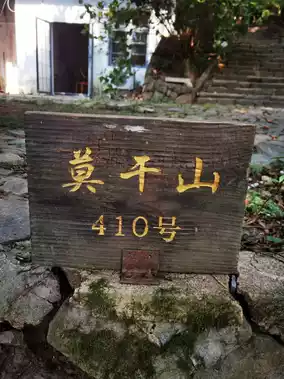 莫干山
410号